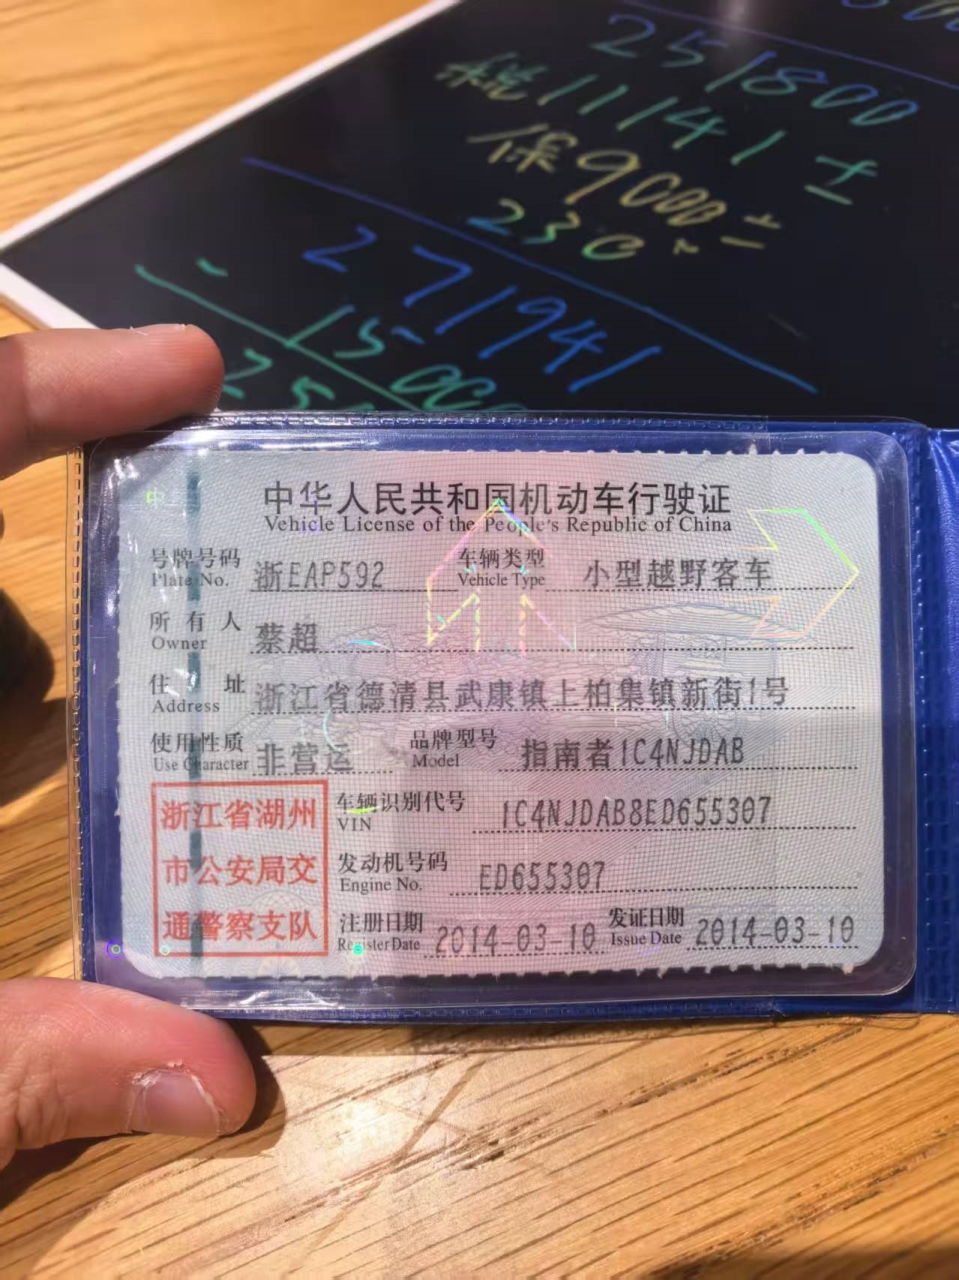 251800
税11141±
保9000±
230
271941
15000
中华人民共和国机动车行驶证
Vehicle License of the People's Republic of China
号牌号码 浙EAP592 车辆类型 小型越野客车
Plate No. Vehicle Type
所有人 蔡超
Owner
住址 浙江省德清县武康镇上柏集镇新街1号
Address
使用性质 非营运 品牌型号 指南者1C4NJDAB
Use Character Model
浙江省湖州
市公安局交
通警察支队
车辆识别代号 1C4NJDAB8ED655307
VIN
发动机号码 ED655307
Engine No.
注册日期 2014-03-10 发证日期 2014-03-10
Register Date Issue Date